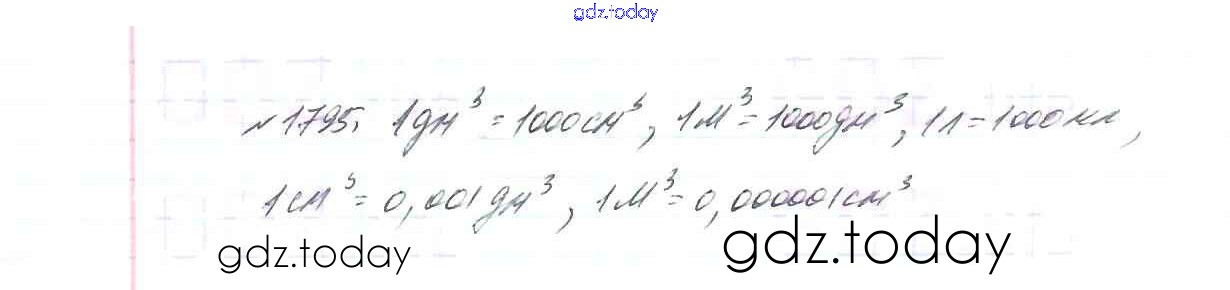 gdz.today
№1795. 1дм³ = 1000см³, 1м³ = 1000дм³, 1л = 1000мл,
1см³ = 0,001дм³, 1м³ = 0,000001см³
gdz.today gdz.today